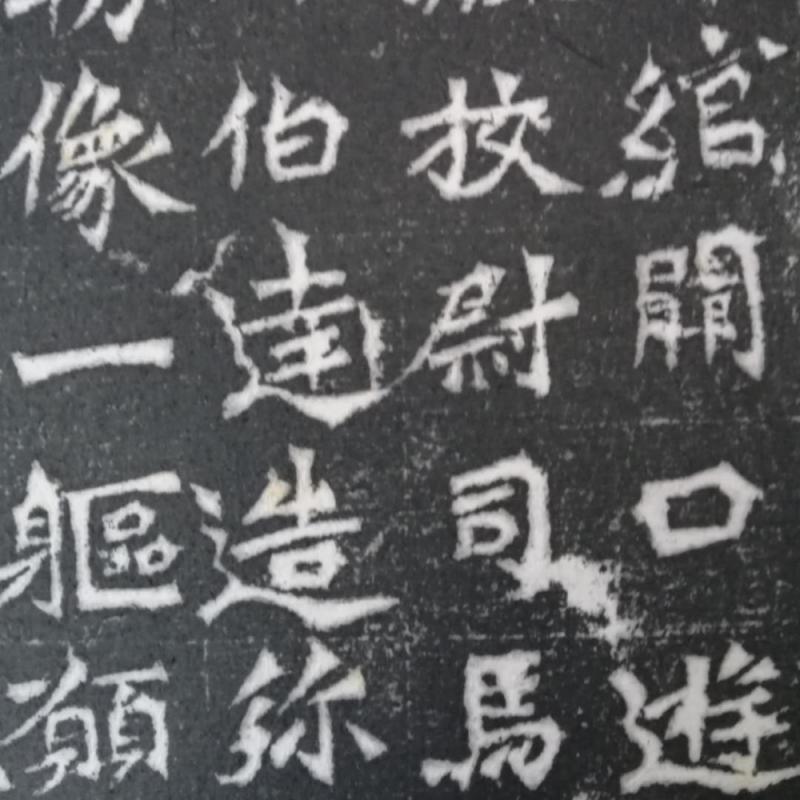 綰闗口遊
校尉司馬
伯達造弥
像一軀願